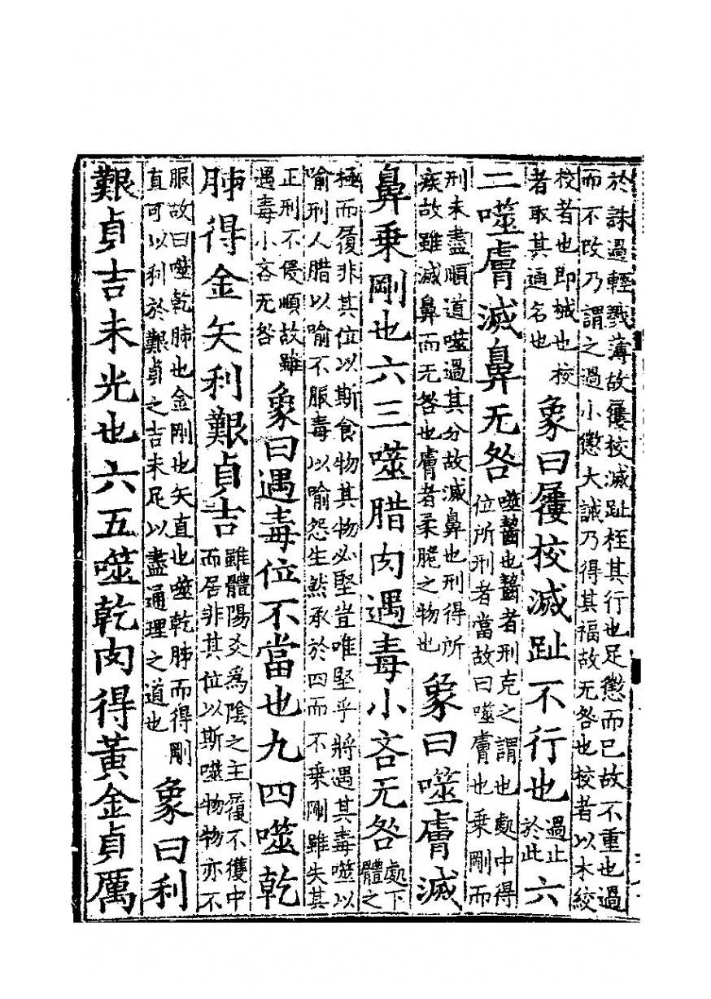 於誅過輕戮薄故屨校滅趾桎其行也足懲而已故不重也過
而不改乃謂之過小懲大誡乃得其福故无咎也校者以木絞
校者也即械也校
者取其通名也
象曰屨校滅趾不行也
過止
於此
六
二噬膚滅鼻无咎
噬齧也齧者刑克之謂也處中得
位所刑者當故曰噬膚也乗剛而
刑未盡順道噬過其分故滅鼻也刑得所
疾故雖滅鼻而无咎也膚者柔脆之物也
象曰噬膚滅
鼻乗剛也六三噬腊肉遇毒小吝无咎
處下
體之
極而履非其位以斯食物其物必堅豈唯堅乎將遇其毒噬以
喻刑人腊以喻不服毒以喻怨生然承於四而不乗剛雖失其
正刑不侵順故雖
遇毒小吝无咎
象曰遇毒位不當也九四噬乾
胏得金矢利艱貞吉
雖體陽爻為陰之主履不獲中
而居非其位以斯噬物物亦不
服故曰噬乾胏也金剛也矢直也噬乾胏而得剛
直可以利於艱貞之吉未足以盡通理之道也
象曰利
艱貞吉未光也六五噬乾肉得黃金貞厲